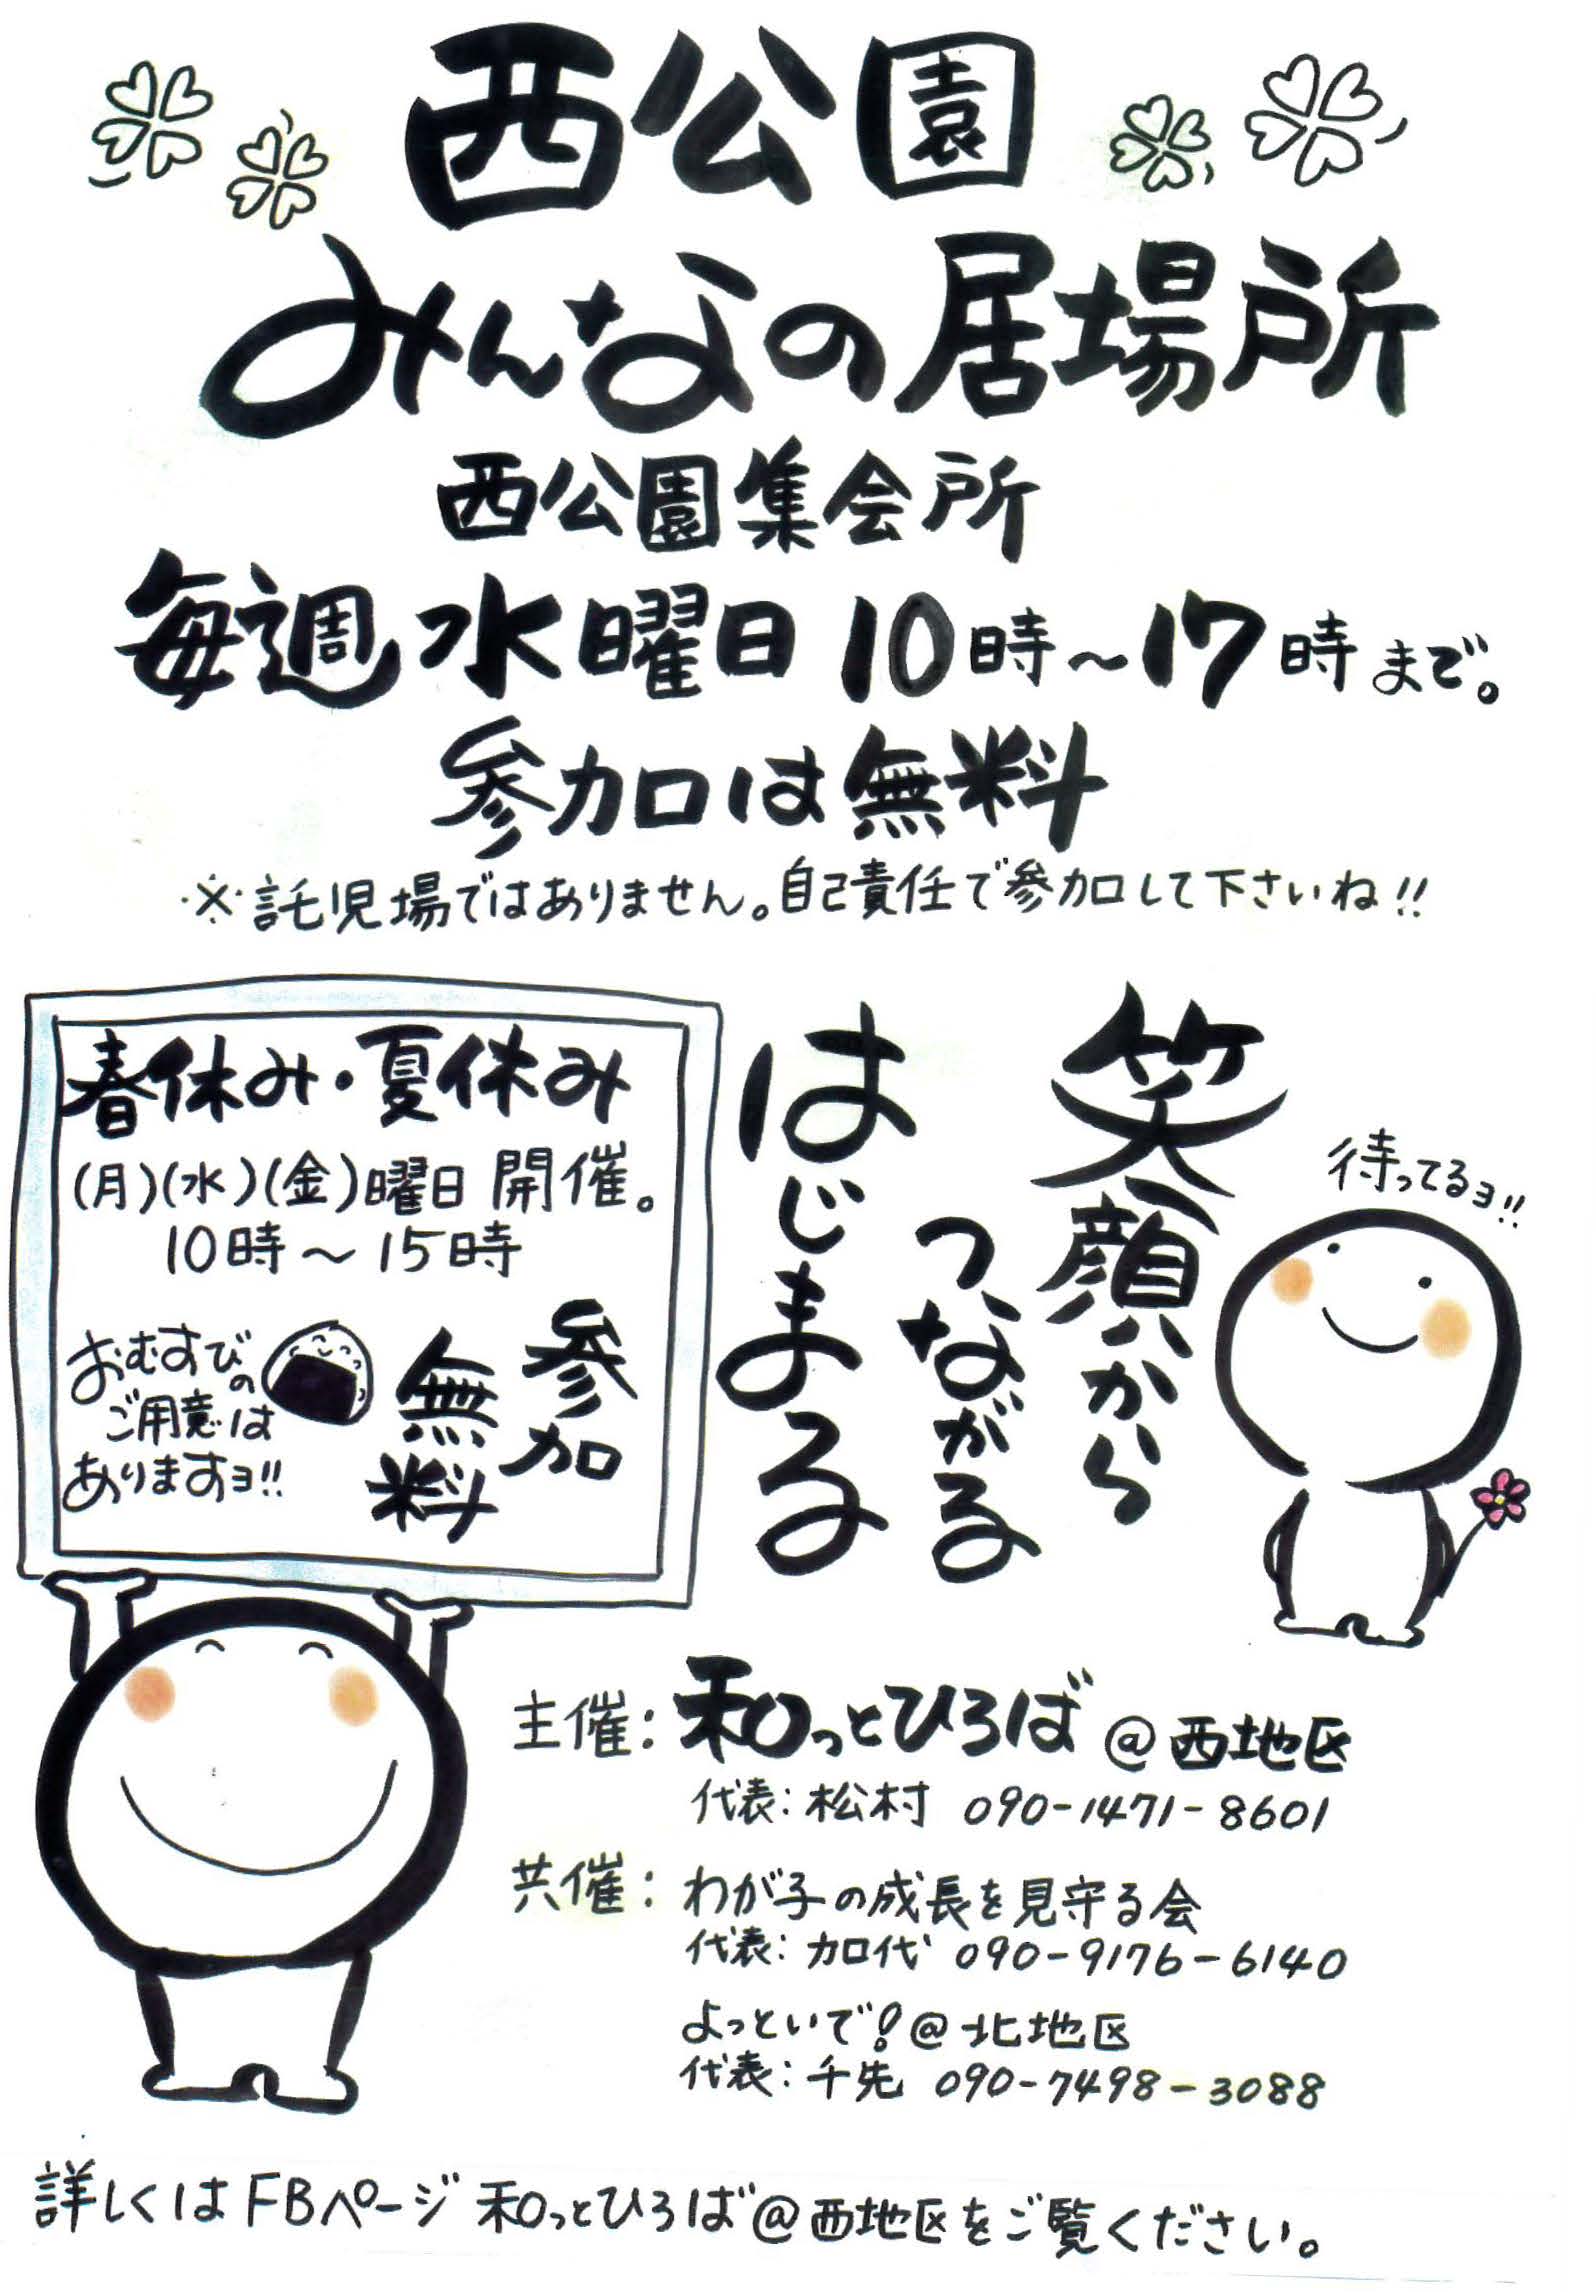 西公園
みんなの居場所
西公園集会所
毎週水曜日10時〜17時まで。
参加は無料
※託児場ではありません。自己責任で参加して下さいね!!
春休み・夏休み
(月)(水)(金)曜日 開催。
10時〜15時
参加
無料
おむすびの
ご用意は
ありますヨ!!
笑顔から
つながる
はじまる
待ってるヨ!!
主催：和っとひろば@西地区
代表：松村 090-1471-8601
共催：わが子の成長を見守る会
代表：加代 090-9176-6140
よっといで!@北地区
代表：千先 090-7498-3088
詳しくはFBページ 和っとひろば@西地区をご覧ください。